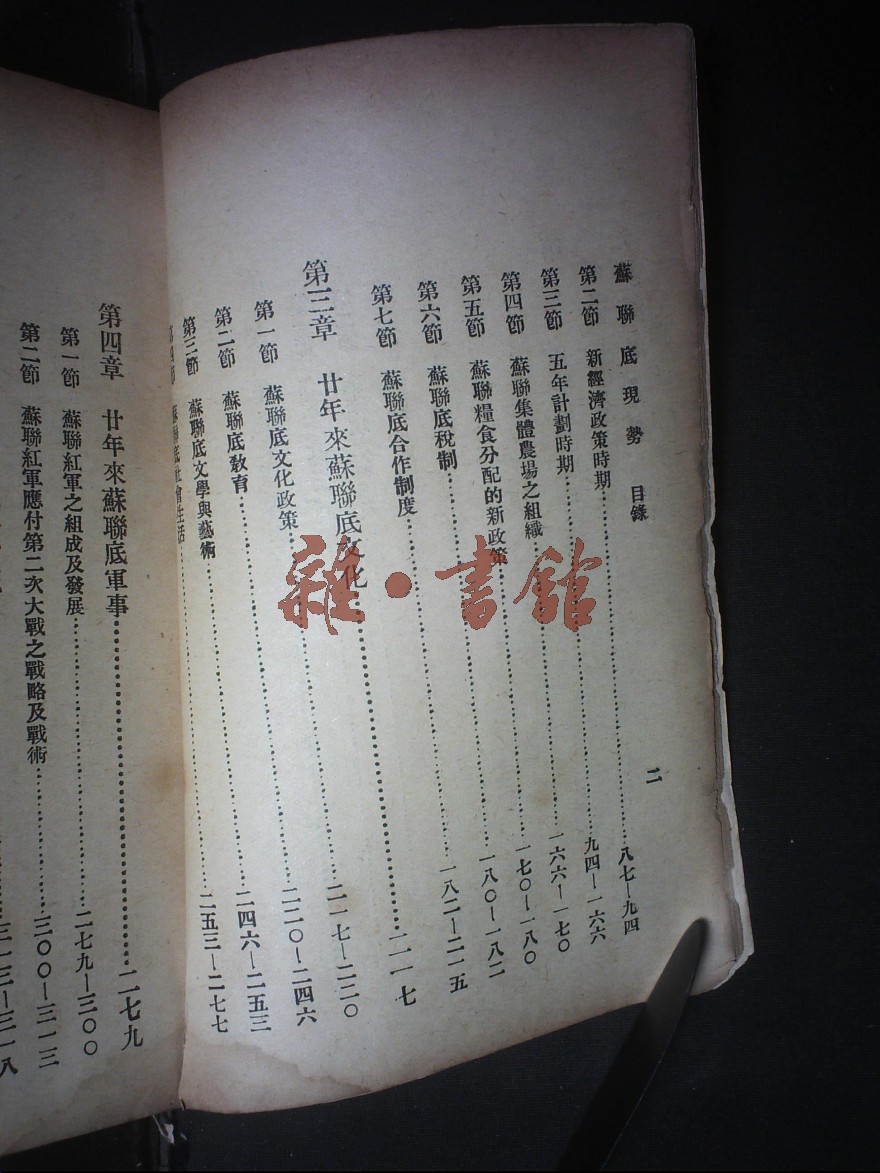 蘇聯底現勢 目錄 二
第二節 新經濟政策時期……八七—九四
第三節 五年計劃時期……九四—一六六
第四節 蘇聯集體農場之組織……一六六—一七〇
第五節 蘇聯糧食分配的新政策……一七〇—一八〇
第六節 蘇聯底稅制……一八〇—一八二
第七節 蘇聯底合作制度……一八二—二一五
第三章 廿年來蘇聯底文化……二一七
第一節 蘇聯底文化政策……二一七—二二〇
第二節 蘇聯底教育……二二〇—二四六
第三節 蘇聯底文學與藝術……二四六—二五三
第四節 蘇聯底社會生活……二五三—二七七
第四章 廿年來蘇聯底軍事……二七九
第一節 蘇聯紅軍之組成及發展……二七九—三〇〇
第二節 蘇聯紅軍應付第二次大戰之戰略及戰術……三〇〇—三一三
三一三—三一八
雜·書館